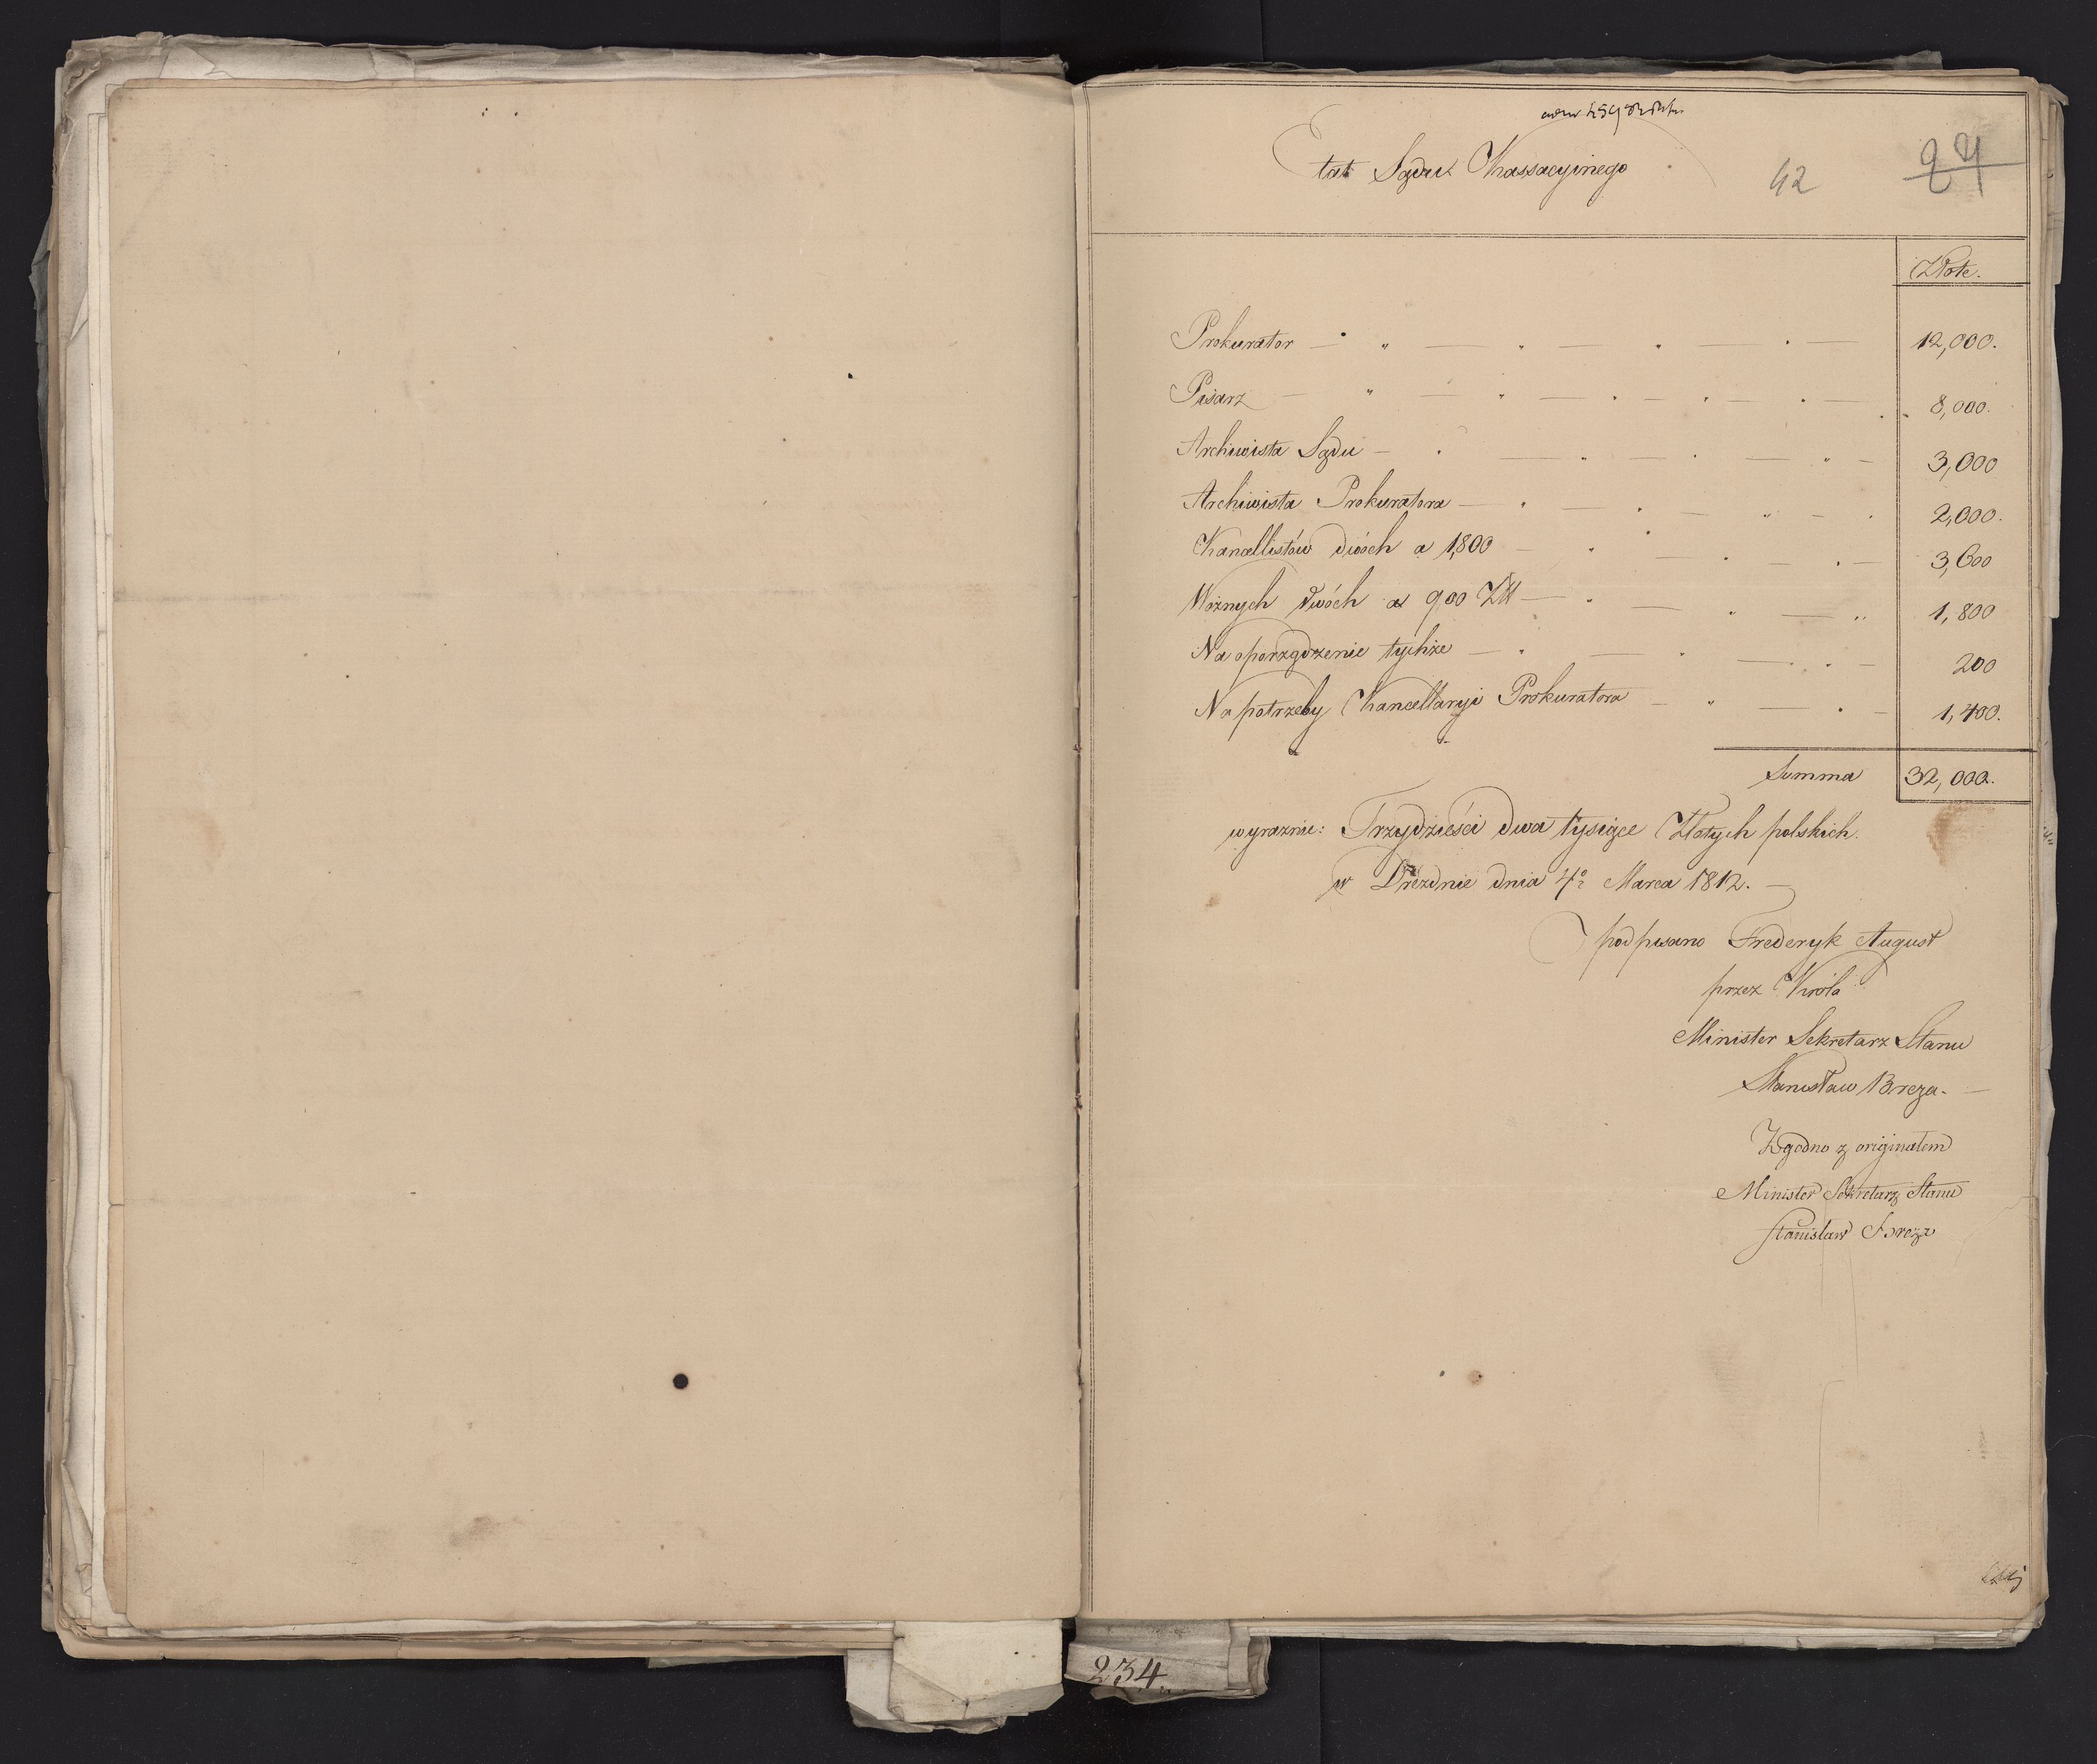 Etat Sądu Kassacyinego
42
24
Złote.
Prokurator 12,000.
Pisarz 8,000.
Archiwista Sądu 3,000
Archiwista Prokuratora 2,000.
Kancellistów dwóch a 1,800 3,600
Woznych dwóch a 900 Złł 1,800
Na oporządzenie tychże 200
Na potrzeby Kancellaryi Prokuratora 1,400.
Summa 32,000.
wyraznie: Trzydzieści dwa tysiące Złotych polskich.
w Dreznie dnia 4º Marca 1812.
podpisano Frederyk August
przez Króla
Minister Sekretarz Stanu
Stanisław Breza.
Zgodno z originałem
Minister Sekretarz Stanu
Stanisław Breza
234